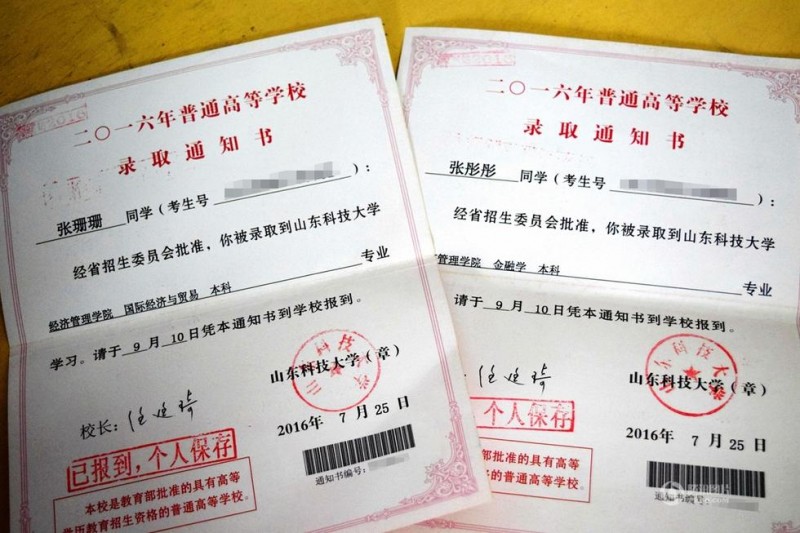 二〇一六年普通高等学校
录取通知书
张珊珊 同学（考生号 ）：
经省招生委员会批准，你被录取到山东科技大学
经济管理学院 国际经济与贸易 本科 专业
学习。请于 9 月 10 日凭本通知书到学校报到。
山东科技大学（章）
校长：
2016年 7 月 25 日
已报到，个人保存
通知书编号：
本校是教育部批准的具有高等
学历教育招生资格的普通高等学校。
二〇一六年普通高等学校
录取通知书
张彤彤 同学（考生号 ）：
经省招生委员会批准，你被录取到山东科技大学
管理学院 金融学 本科 专业
请于 9 月 10 日凭本通知书到学校报到。
山东科技大学
山东科技大学（章）
2016年 7 月 25 日
个人保存
通知书编号：
部批准的具有高等
资格的普通高等学校。